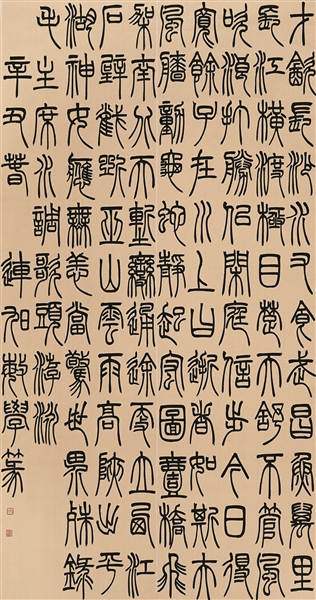 才飲長沙水又食武昌魚萬里
長江橫渡極目楚天舒不管風
吹浪打勝似閑庭信步今日得
寬餘子在川上曰逝者如斯夫
風檣動龜蛇靜起宏圖壹橋飛
架南北天塹變通途更立西江
石壁截斷巫山雲雨高峽出平
湖神女應無恙當驚世界殊錄
毛主席水調歌頭游泳
辛丑春連學篆